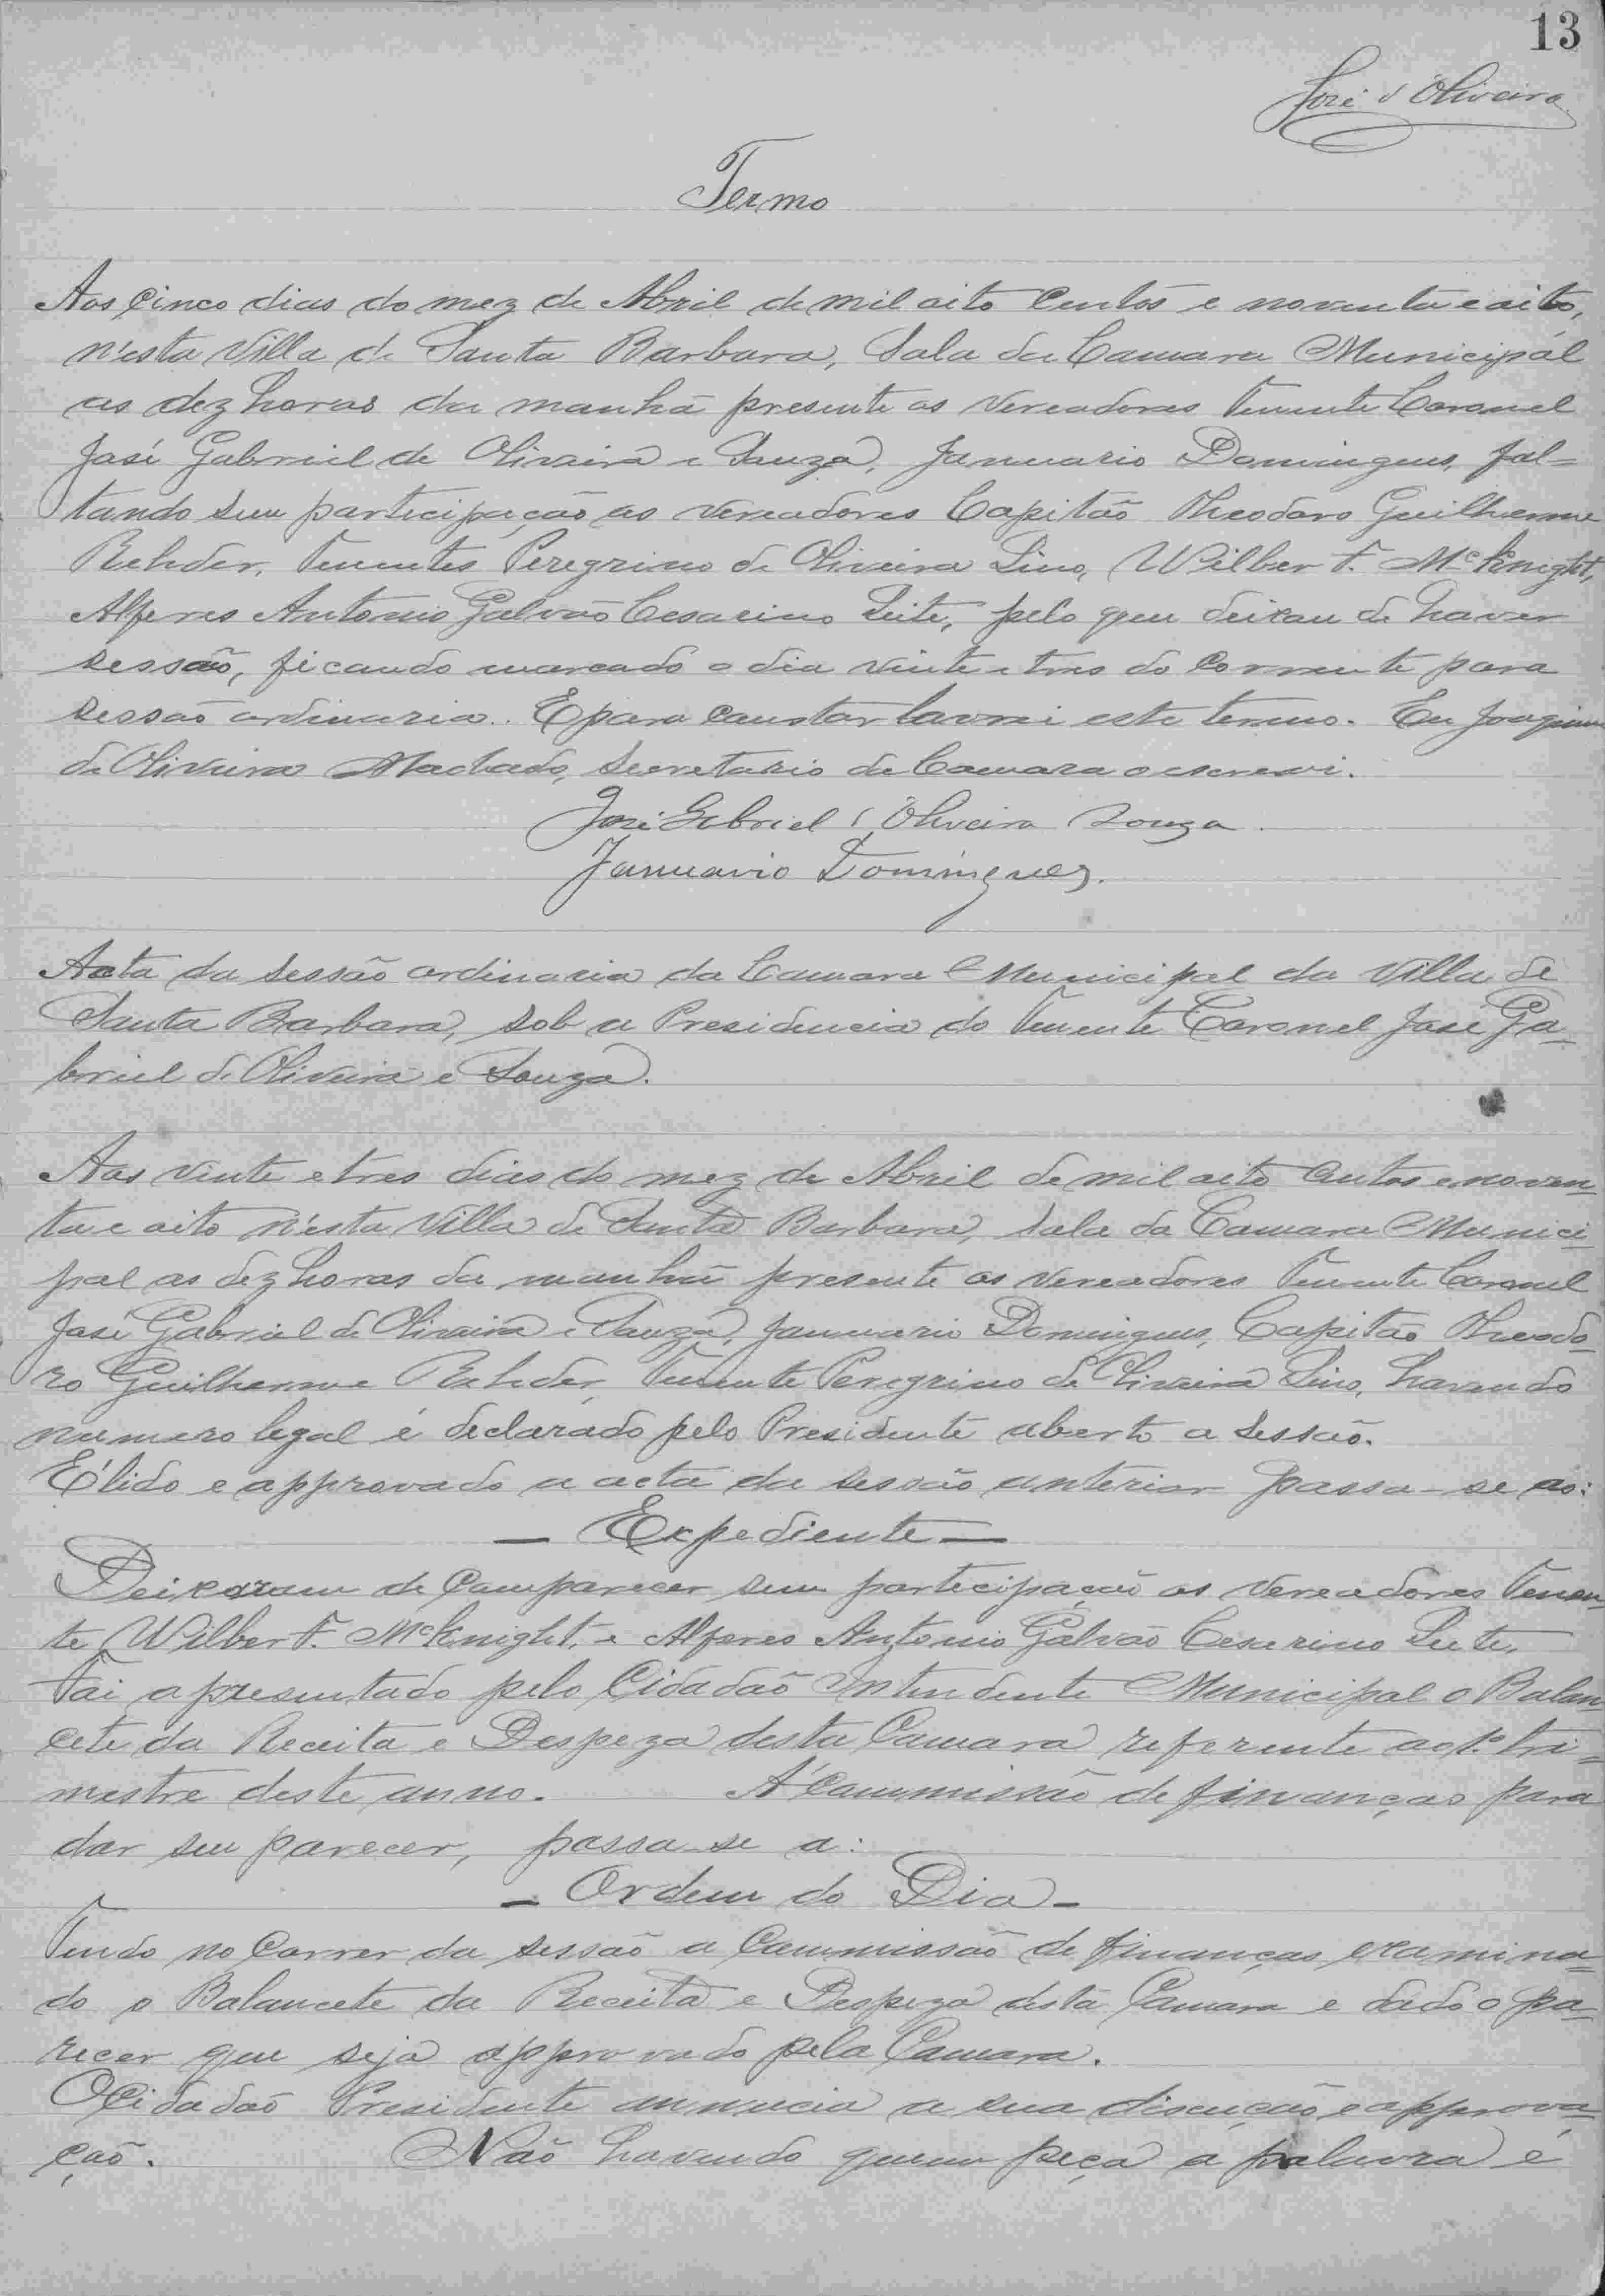 13
José d'Oliveira
Termo
Aos cinco dias do mez de Abril de mil oito centos e noventa e oito,
n'esta Villa de Santa Barbara, Sala da Camara Municipal
as dez horas da manhã presente os Vereadores Tenente Coronel
José Gabriel de Oliveira e Souza, Januario Domingues, fal=
tando sem participação os Vereadores Capitão Theodoro Guilherme
Rehder, Tenentes Peregrino de Oliveira Lino, Wilber F. McKnight,
Alferes Antonio Galvão Cesarino Leite, pelo que deixou de haver
sessão, ficando marcado o dia vinte e tres do corrente para
sessão ordinaria. E para constar lavrei este termo. Eu Joaquim
de Oliveira Machado, Secretario da Camara o escrevi.
José Gabriel d'Oliveira Souza.
Januario Domingues.
Acta da sessão ordinaria da Camara Municipal da Villa de
Santa Barbara, sob a Presidencia do Tenente Coronel José Ga-
briel de Oliveira e Souza.
Aos vinte e tres dias do mez de Abril de mil oito centos e noven
ta e oito n'esta Villa de Santa Barbara, Sala da Camara Munici-
pal as dez horas da manhã presente os Vereadores Tenente Coronel
José Gabriel de Oliveira e Souza, Januario Domingues, Capitão Theodo-
ro Guilherme Rehder, Tenente Peregrino de Oliveira Lino, havendo
numero legal é declarado pelo Presidente aberto a Sessão.
É lido e approvado a acta da sessão anterior passa-se ao:
— Expediente —
Deixaram de comparecer sem participação os Vereadores Tenen-
te Wilber F. McKnight, e Alferes Antonio Galvão Cesarino Leite,
Foi apresentado pelo Cidadão Intendente Municipal o Balan-
cete da Receita e Despeza desta Camara referente ao 1º tri=
mestre deste anno. A' Commissão de finanças para
dar seu parecer, passa-se a:
- Ordem do Dia -
Tendo no correr da sessão a Commissão de finanças examina=
do o Balancete da Receita e Despeza desta Camara e dado o pa-
recer que seja approvado pela Camara.
O Cidadão Presidente annuncia a sua discução e approva-
ção. Não havendo quem peça a palavra é